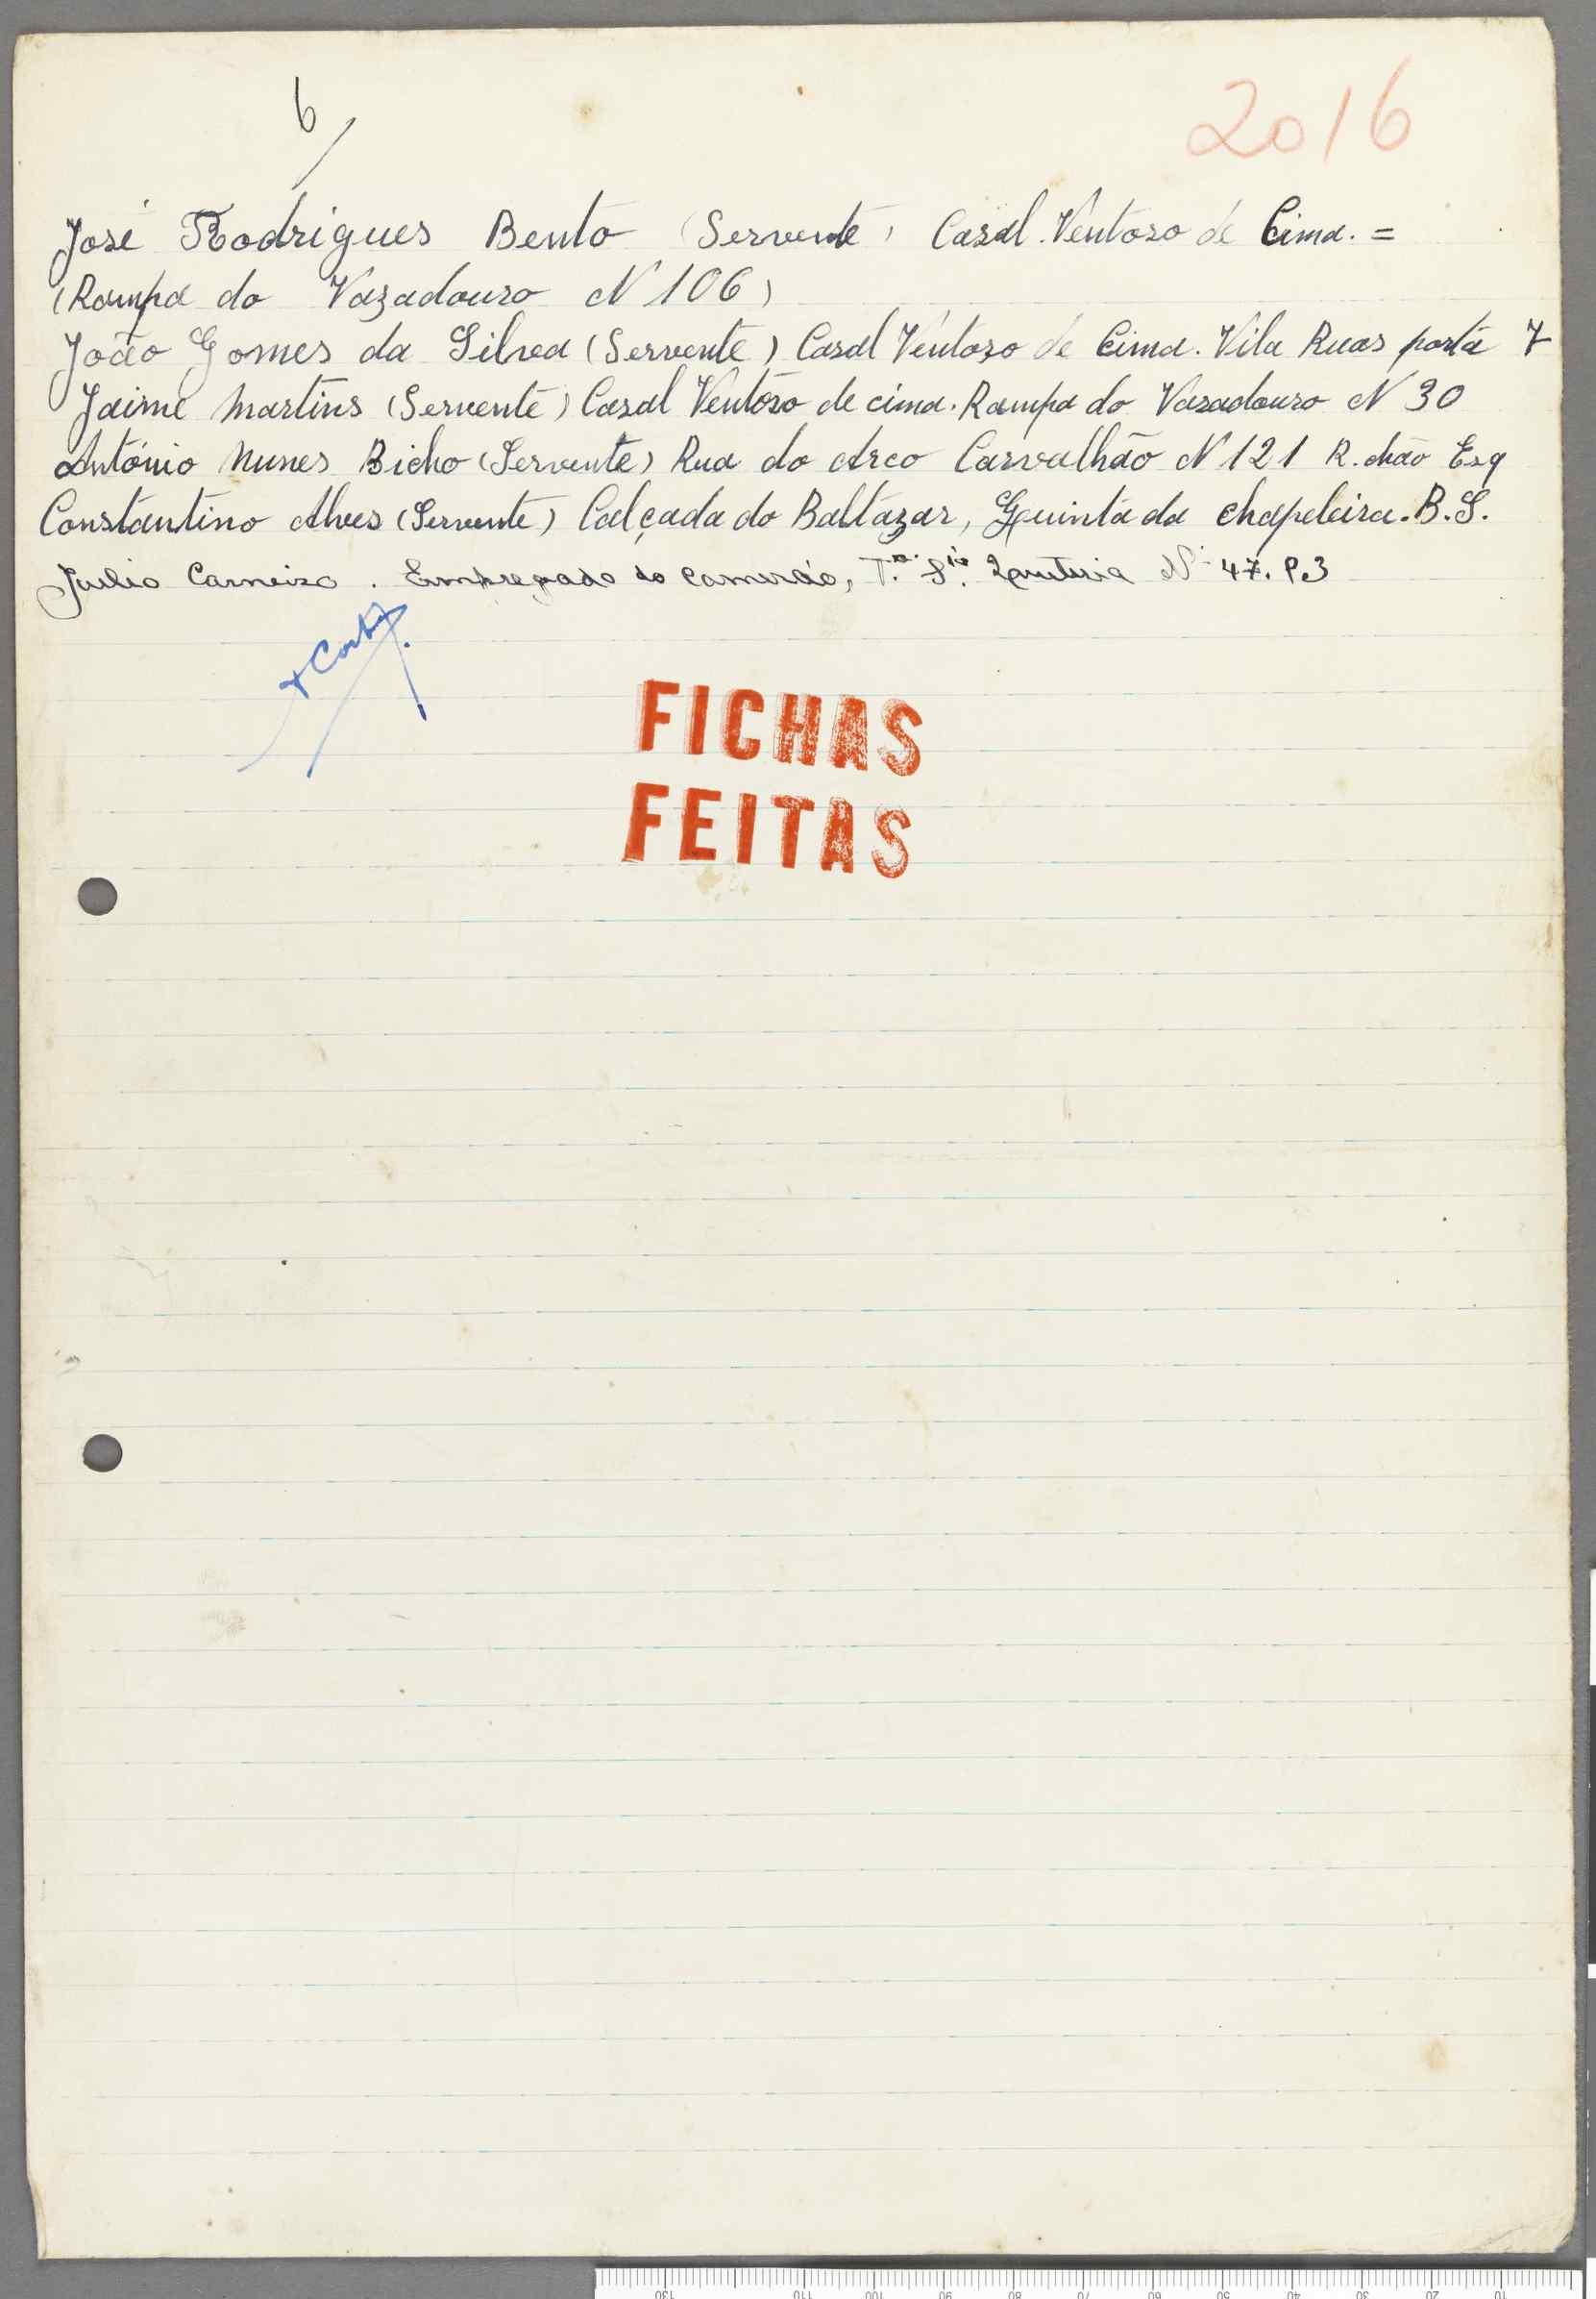 6
2016
José Rodrigues Bento (Servente) Casal Ventoso de Cima. =
(Rampa do Vazadouro N 106)
João Gomes da Silva (Servente) Casal Ventozo de Cima. Vila Ruas porta 7
Jaime Martins (Servente) Casal Ventoso de cima. Rampa do Vasadouro N 30
António Nunes Bicho (Servente) Rua do Arco Carvalhão N 121 R. chão Esq
Constantino Alves (Servente) Calçada do Baltazar, Quinta da chapeleira. B.S.
Julio Carneiro. Empregado do Comercio, T.ª S.to Quiteria Nº 47. P.3
FICHAS
FEITAS